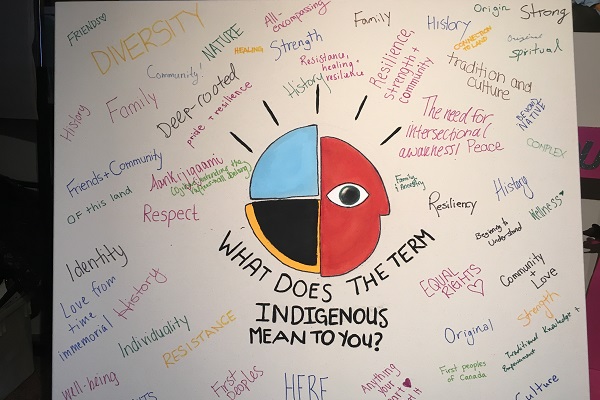 FRIENDS
DIVERSITY
NATURE
HEALING
All-
encompassing
Strength
Family
History
Origin
Strong
CONNECTION
TO LAND
Original
Spiritual
Community
Resistance,
healing
resilience
History
Resilience,
Strength +
Community
Tradition and
Culture
History
Family
Deep-rooted
pride + resilience
The need for
intersectional
awareness/Peace
BEYOND
NATIVE
COMPLEX
Friends + Community
OF this land
Respect
Family
Resiliency
History
Wellness
Beginning to
Understand
WHAT DOES THE TERM
INDIGENOUS
MEAN TO YOU?
Identity
Love from
time
immemorial
History
Individuality
RESISTANCE
EQUAL
RIGHTS
Community
+ Love
Strength
Original
Traditional Knowledge +
First peoples
of Canada
Well-being
First
Peoples
HERE
Anything
your
Culture